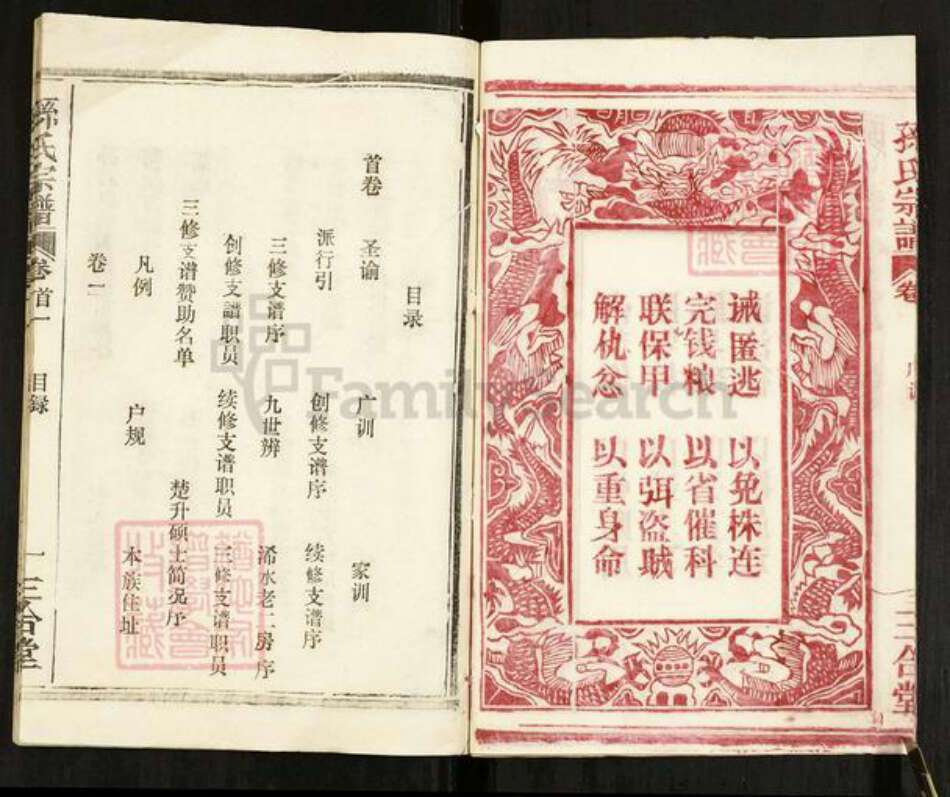 孙氏宗谱 卷
诫匿逃 以免株连
完钱粮 以省催科
联保甲 以弭盗贼
解仇忿 以重身命
三合堂
目录
首卷 圣谕 广训 家训
派行引 创修支谱序 续修支谱序
三修支谱序 九世辨 浠水老二房序
创修支譜职员 续修支谱职员 三修支谱职员
三修支谱赞助名单 楚升硕士简况序
凡例 户规 本族住址
卷一
孙氏宗谱 卷首一 目録 一 三合堂
FamilySearch